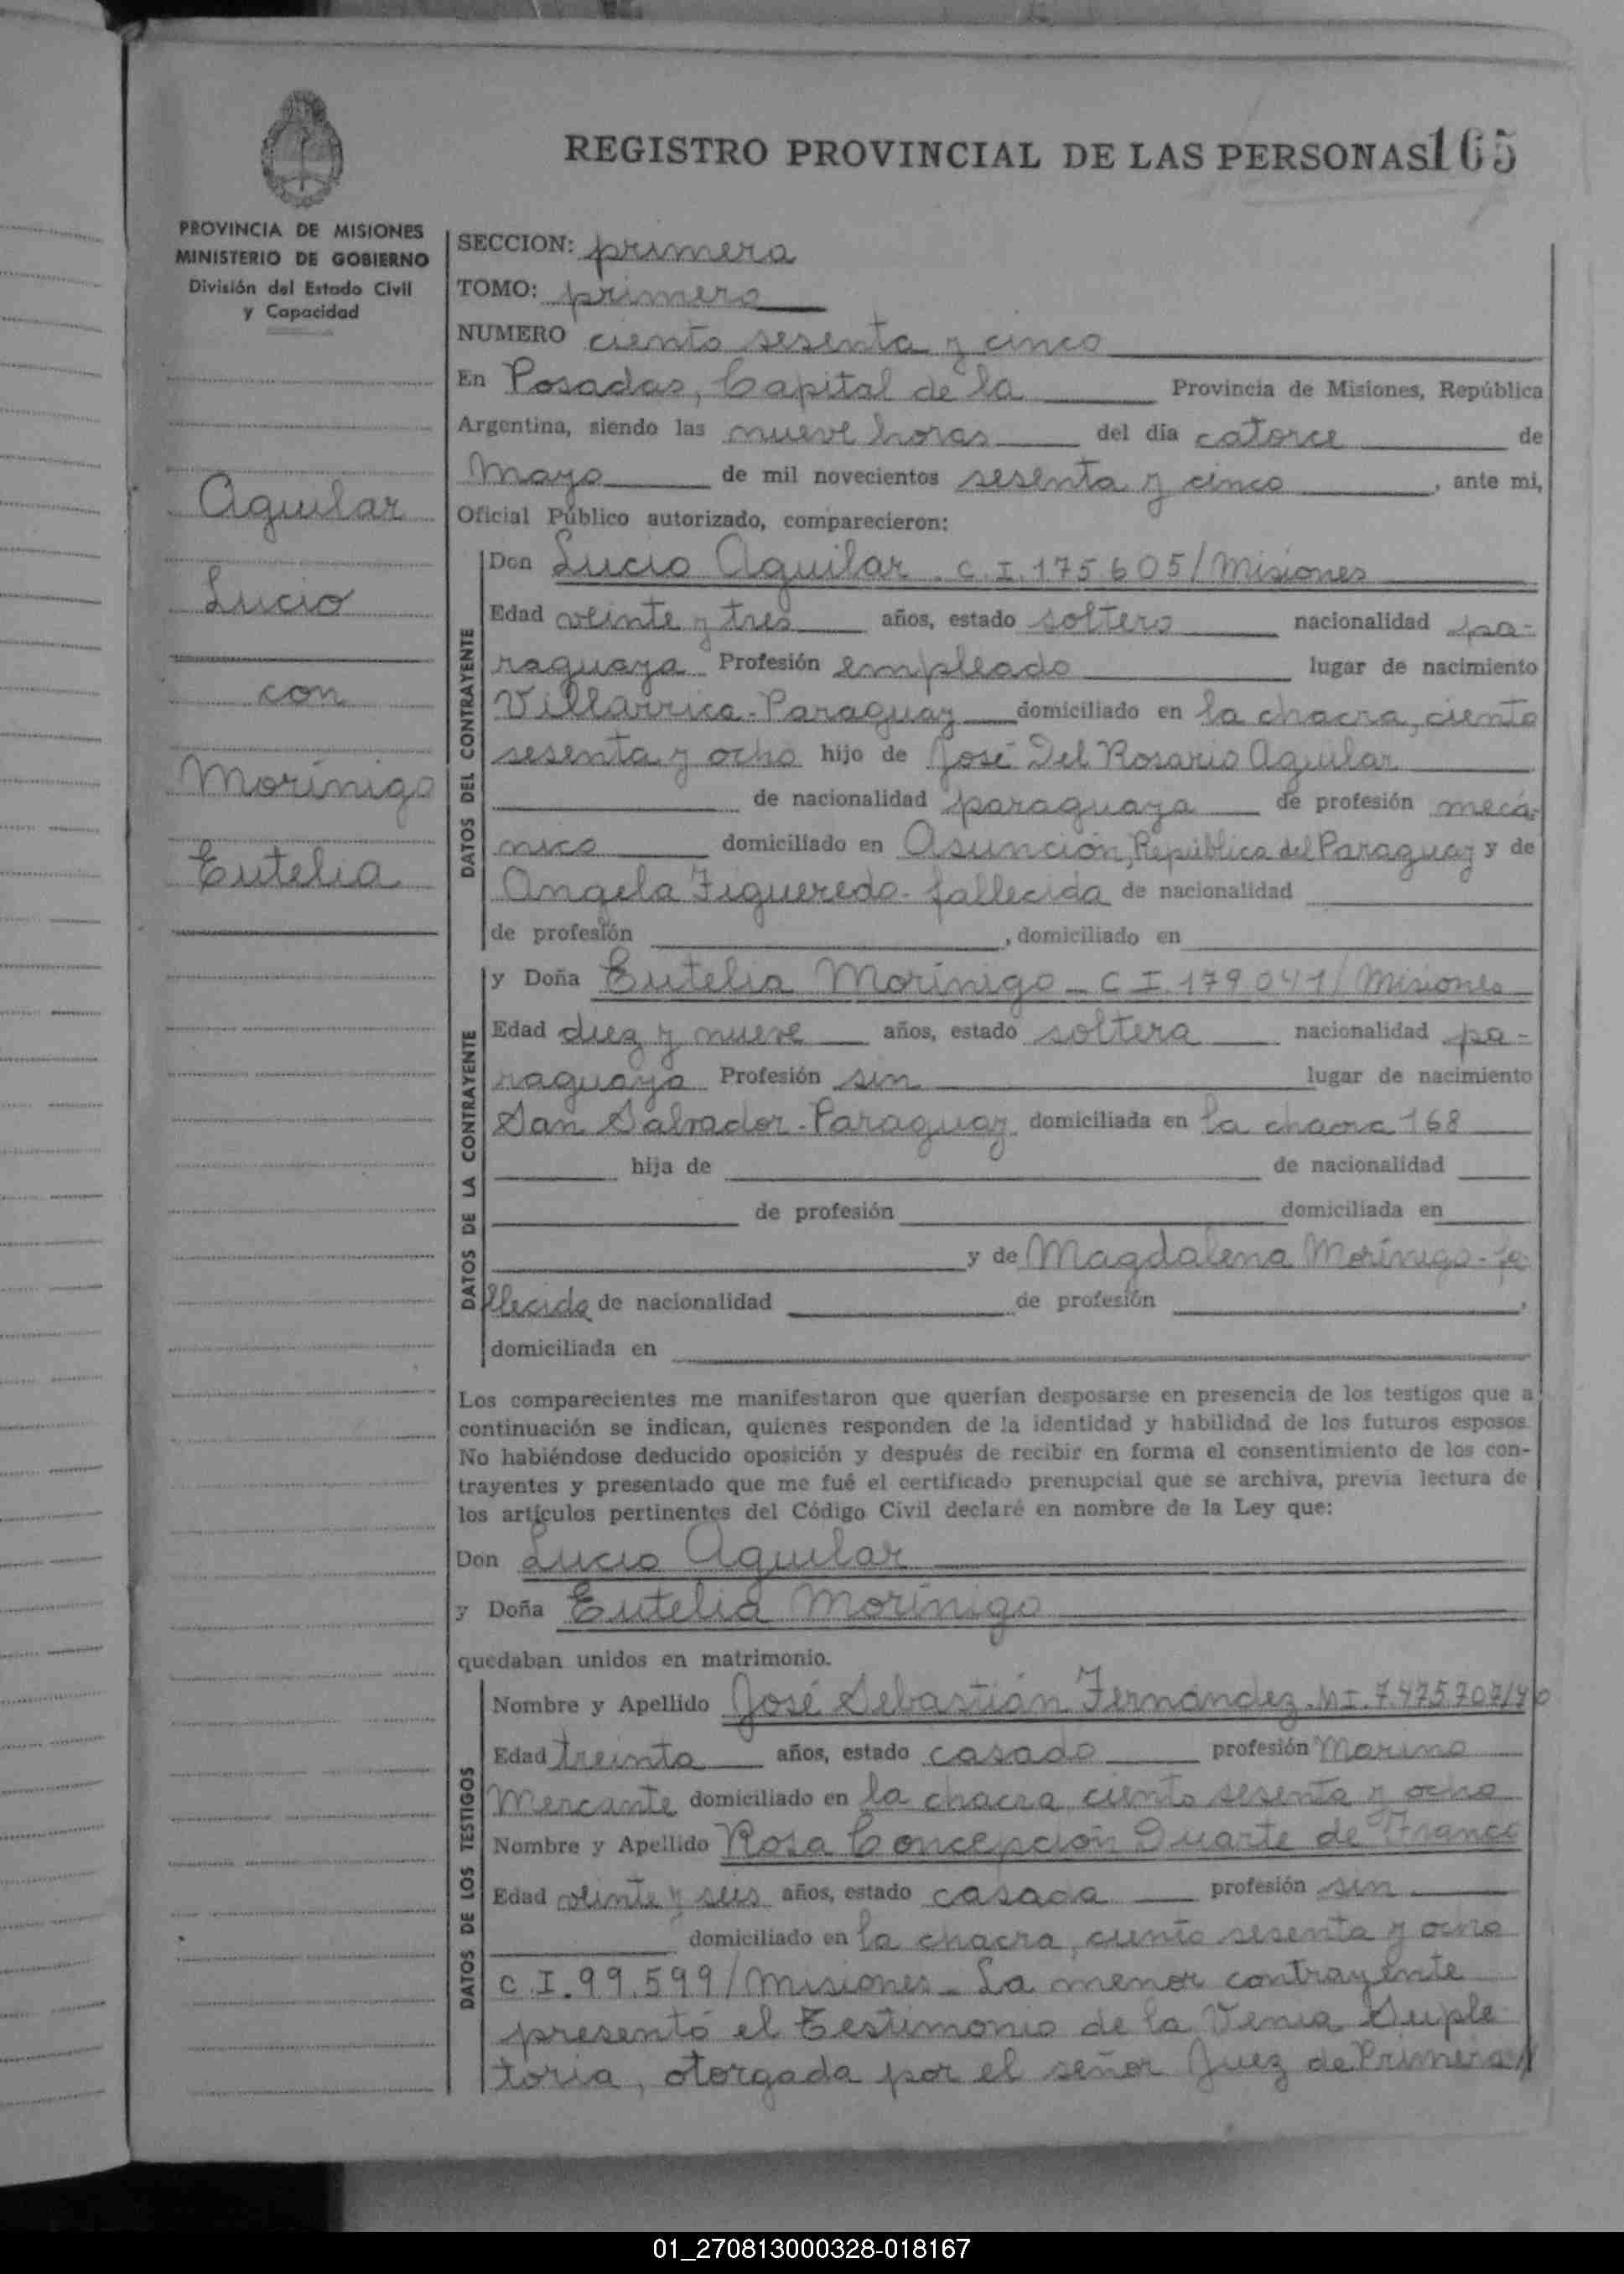 REGISTRO PROVINCIAL DE LAS PERSONAS 165
PROVINCIA DE MISIONES
MINISTERIO DE GOBIERNO
División del Estado Civil
y Capacidad
Aguilar
Lucio
con
Morínigo
Eutelia
SECCION: primera
TOMO: primero
NUMERO ciento sesenta y cinco
En Posadas, Capital de la Provincia de Misiones, República
Argentina, siendo las nueve horas del día catorce de
Mayo de mil novecientos sesenta y cinco, ante mi,
Oficial Público autorizado, comparecieron:
DATOS DEL CONTRAYENTE
Don Lucio Aguilar. C.I. 175.605/Misiones
Edad veinte y tres años, estado soltero nacionalidad pa-
raguaya Profesión empleado lugar de nacimiento
Villarrica-Paraguay domiciliado en la chacra, ciento
sesenta y ocho hijo de José Del Rosario Aguilar
de nacionalidad paraguaya de profesión mecá-
nico domiciliado en Asunción, República del Paraguay y de
Angela Figueredo-fallecida de nacionalidad
de profesión , domiciliado en
DATOS DE LA CONTRAYENTE
y Doña Eutelia Morínigo - C.I. 179.041/Misiones
Edad diez y nueve años, estado soltera nacionalidad pa-
raguaya Profesión sin lugar de nacimiento
San Salvador-Paraguay domiciliada en la chacra 168
hija de de nacionalidad
de profesión domiciliada en
y de Magdalena Morínigo-fa
llecida de nacionalidad de profesión ,
domiciliada en
Los comparecientes me manifestaron que querían desposarse en presencia de los testigos que a
continuación se indican, quienes responden de la identidad y habilidad de los futuros esposos.
No habiéndose deducido oposición y después de recibir en forma el consentimiento de los con-
trayentes y presentado que me fué el certificado prenupcial que se archiva, previa lectura de
los artículos pertinentes del Código Civil declaré en nombre de la Ley que:
Don Lucio Aguilar
y Doña Eutelia Morínigo
quedaban unidos en matrimonio.
DATOS DE LOS TESTIGOS
Nombre y Apellido José Sebastián Fernández. M.I.
Edad treinta años, estado casado profesión Marino
Mercante domiciliado en la chacra ciento sesenta y ocho
Nombre y Apellido Rosa Concepción Duarte de Franco
Edad veinte y seis años, estado casada profesión sin
domiciliado en la chacra, ciento sesenta y ocho
C.I. 99.599/Misiones - La menor contrayente
presentó el Testimonio de la Venia Suple
toria, otorgada por el señor Juez de Primera
01_270813000328-018167